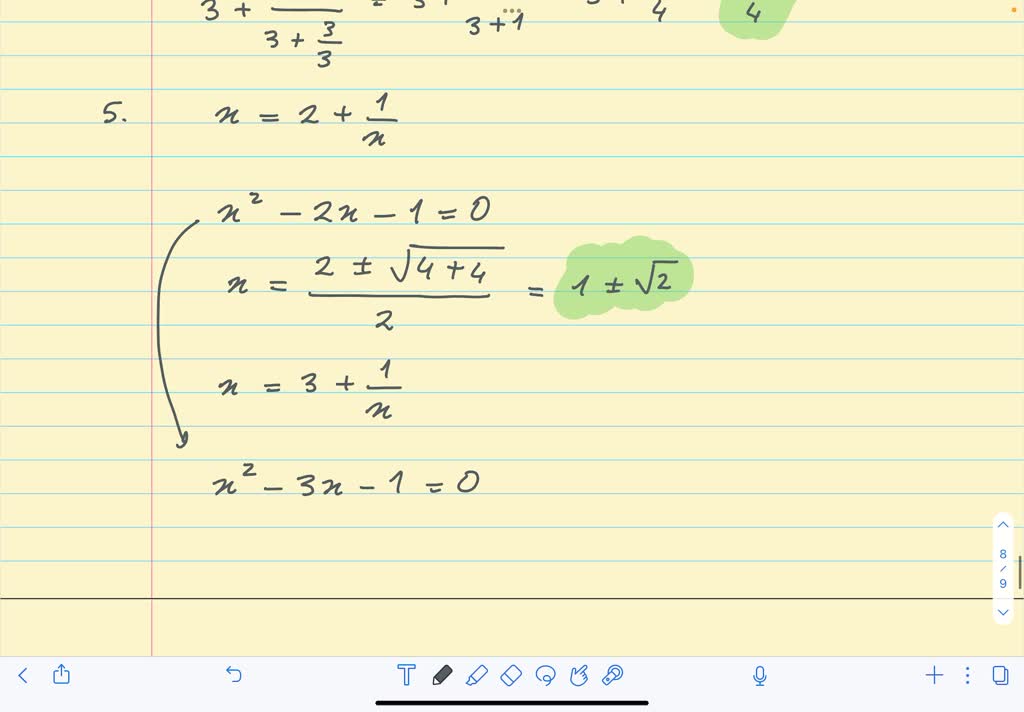 3 + 3/3
3 + 1
4
4
5. x = 2 + 1/x
x² - 2x - 1 = 0
x = (2 ± √(4 + 4))/2 = 1 ± √2
x = 3 + 1/x
x² - 3x - 1 = 0
8
/
9
T